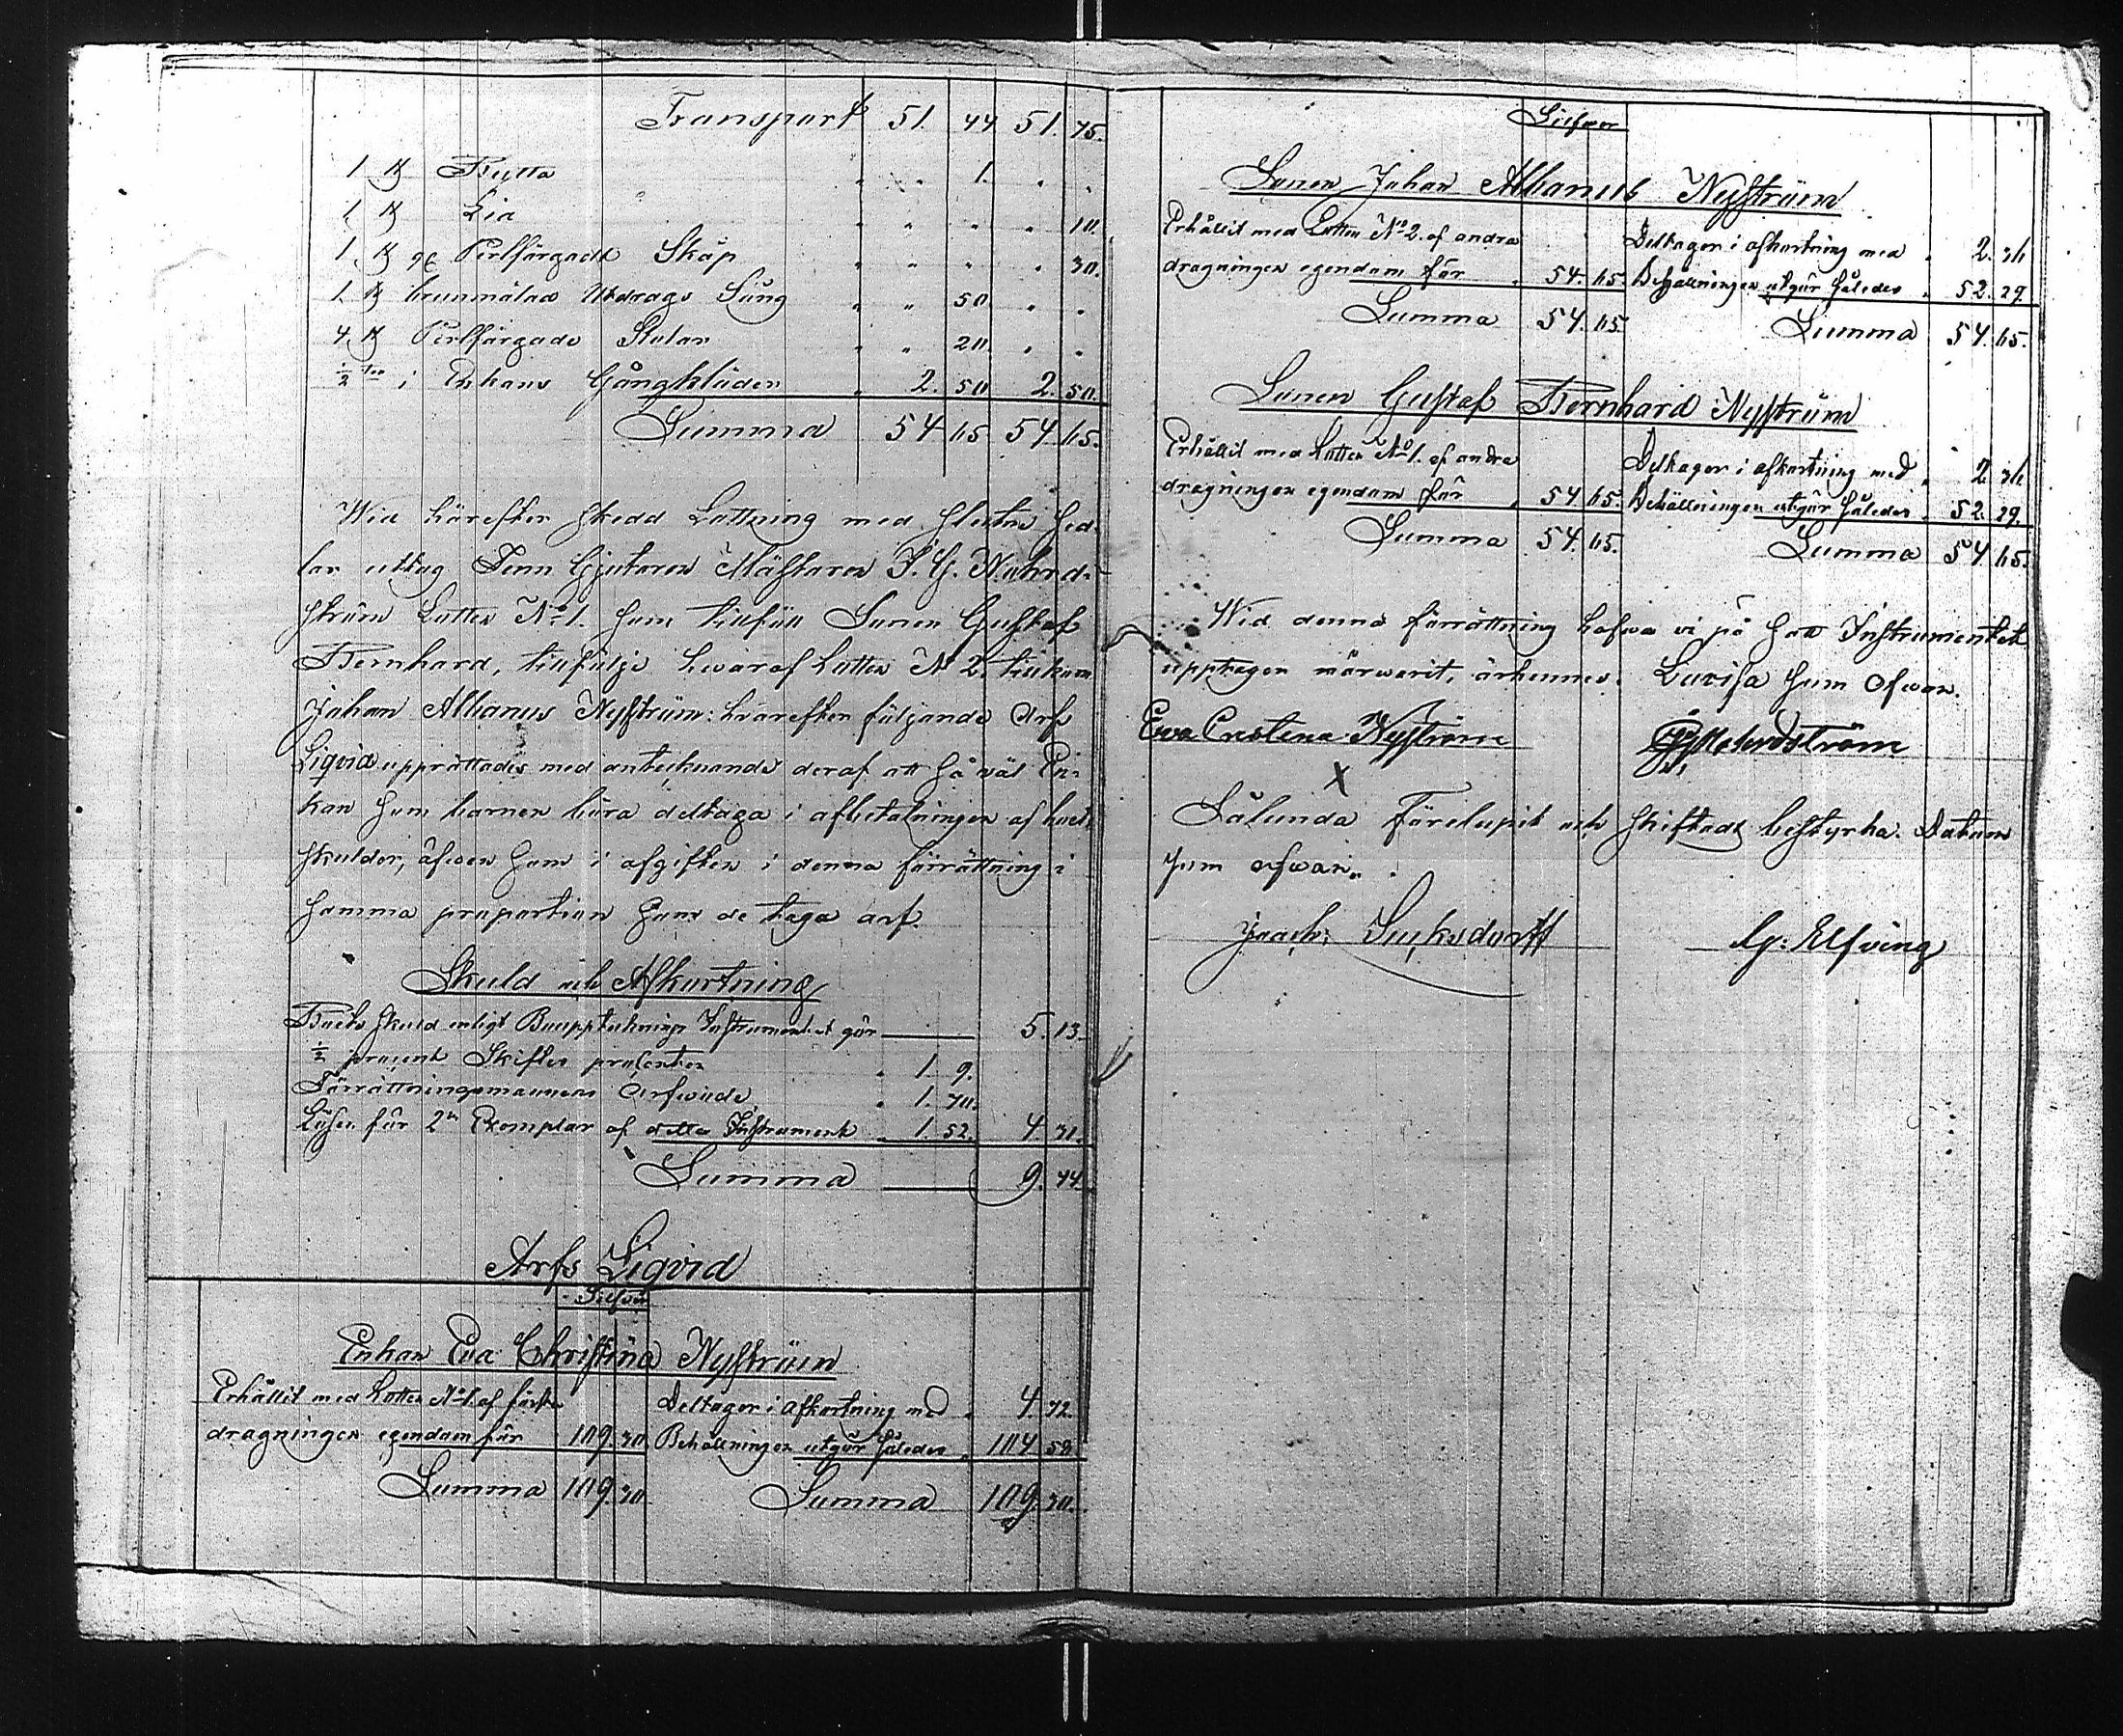 Transport 51. 44 51. 75.
1 st Bytta " " 1. " "
1 st Lia " " " " 10.
1 st gl Perlfärgadt Skåp " " " " 30.
1 st brunmålad Utdrags Säng " " 50 " "
4 st Perlfärgade Stolar " " 20. " "
1/2 i Enkans Gångkläder " 2. 50 2. 50.
Summa 54 65 54. 65.
Wid härefter skedd Lottning med slutna Sed-
lar uttog Tenn Gjutaren Mästaren N:o
ström Lotten No 1. som tillföll Sonen Gustaf
Bernhard, tillfölje hwaraf Lotten N 2. tillkom
Johan Albanus Nyström: hvarefter följande Arfs
Liqvid upprättades med antecknande deraf att så wäl En-
kan som barnen böra deltaga i afbetalningen af boets
skulder, äfwen som i afgiften i denna förrättning i
samma proportion som de taga arf.
Skuld och Afkortning
Boets skuld enligt Bouppteknings Instrumentet gör 5. 13.
1/2 procent Skiftes procenten " 1 9.
Förrättningsmannens Arfwode " 1. 70.
Lösen för 2ne Exemplar af detta Instrument " 1. 52. 4 31.
Summa 9. 44.
Arfs Liqvid
Silfver
Enkan Eva Christina Nyström
Erhållit med Lotten No 1 af första Deltager i afkortning med " 4. 72.
dragningen egendom för 109. 30 Behållningen utgör således " 104 58
Summa 109. 30 Summa 109. 30.
Silfver
Sonen Johan Albanus Nyström
Erhållit med Lotten No 2. af andra Deltager i afkortning med " 2. 36
dragningen egendom för " 54. 65. Behållningen utgör således " 52. 29.
Summa 54. 65. Summa 54. 65.
Sonen Gustaf Bernhard Nyström
Erhållit med Lotten No 1. af andra Deltager i afkortning med " 2. 36
dragningen egendom för " 54. 65. Behållningen utgör således " 52. 29.
Summa 54. 65. Summa 54 65.
Wid denna förrättning hafwa vi på sätt Instrumentet
upptager närwarit, erkännes. Lovisa som ofwan.
Ewa Cristina Nyström
X
Sålunda Förelupit och skiftadt bestyrka. Datum
som ofwan.
Joach: Sucksdorff G: Elfving